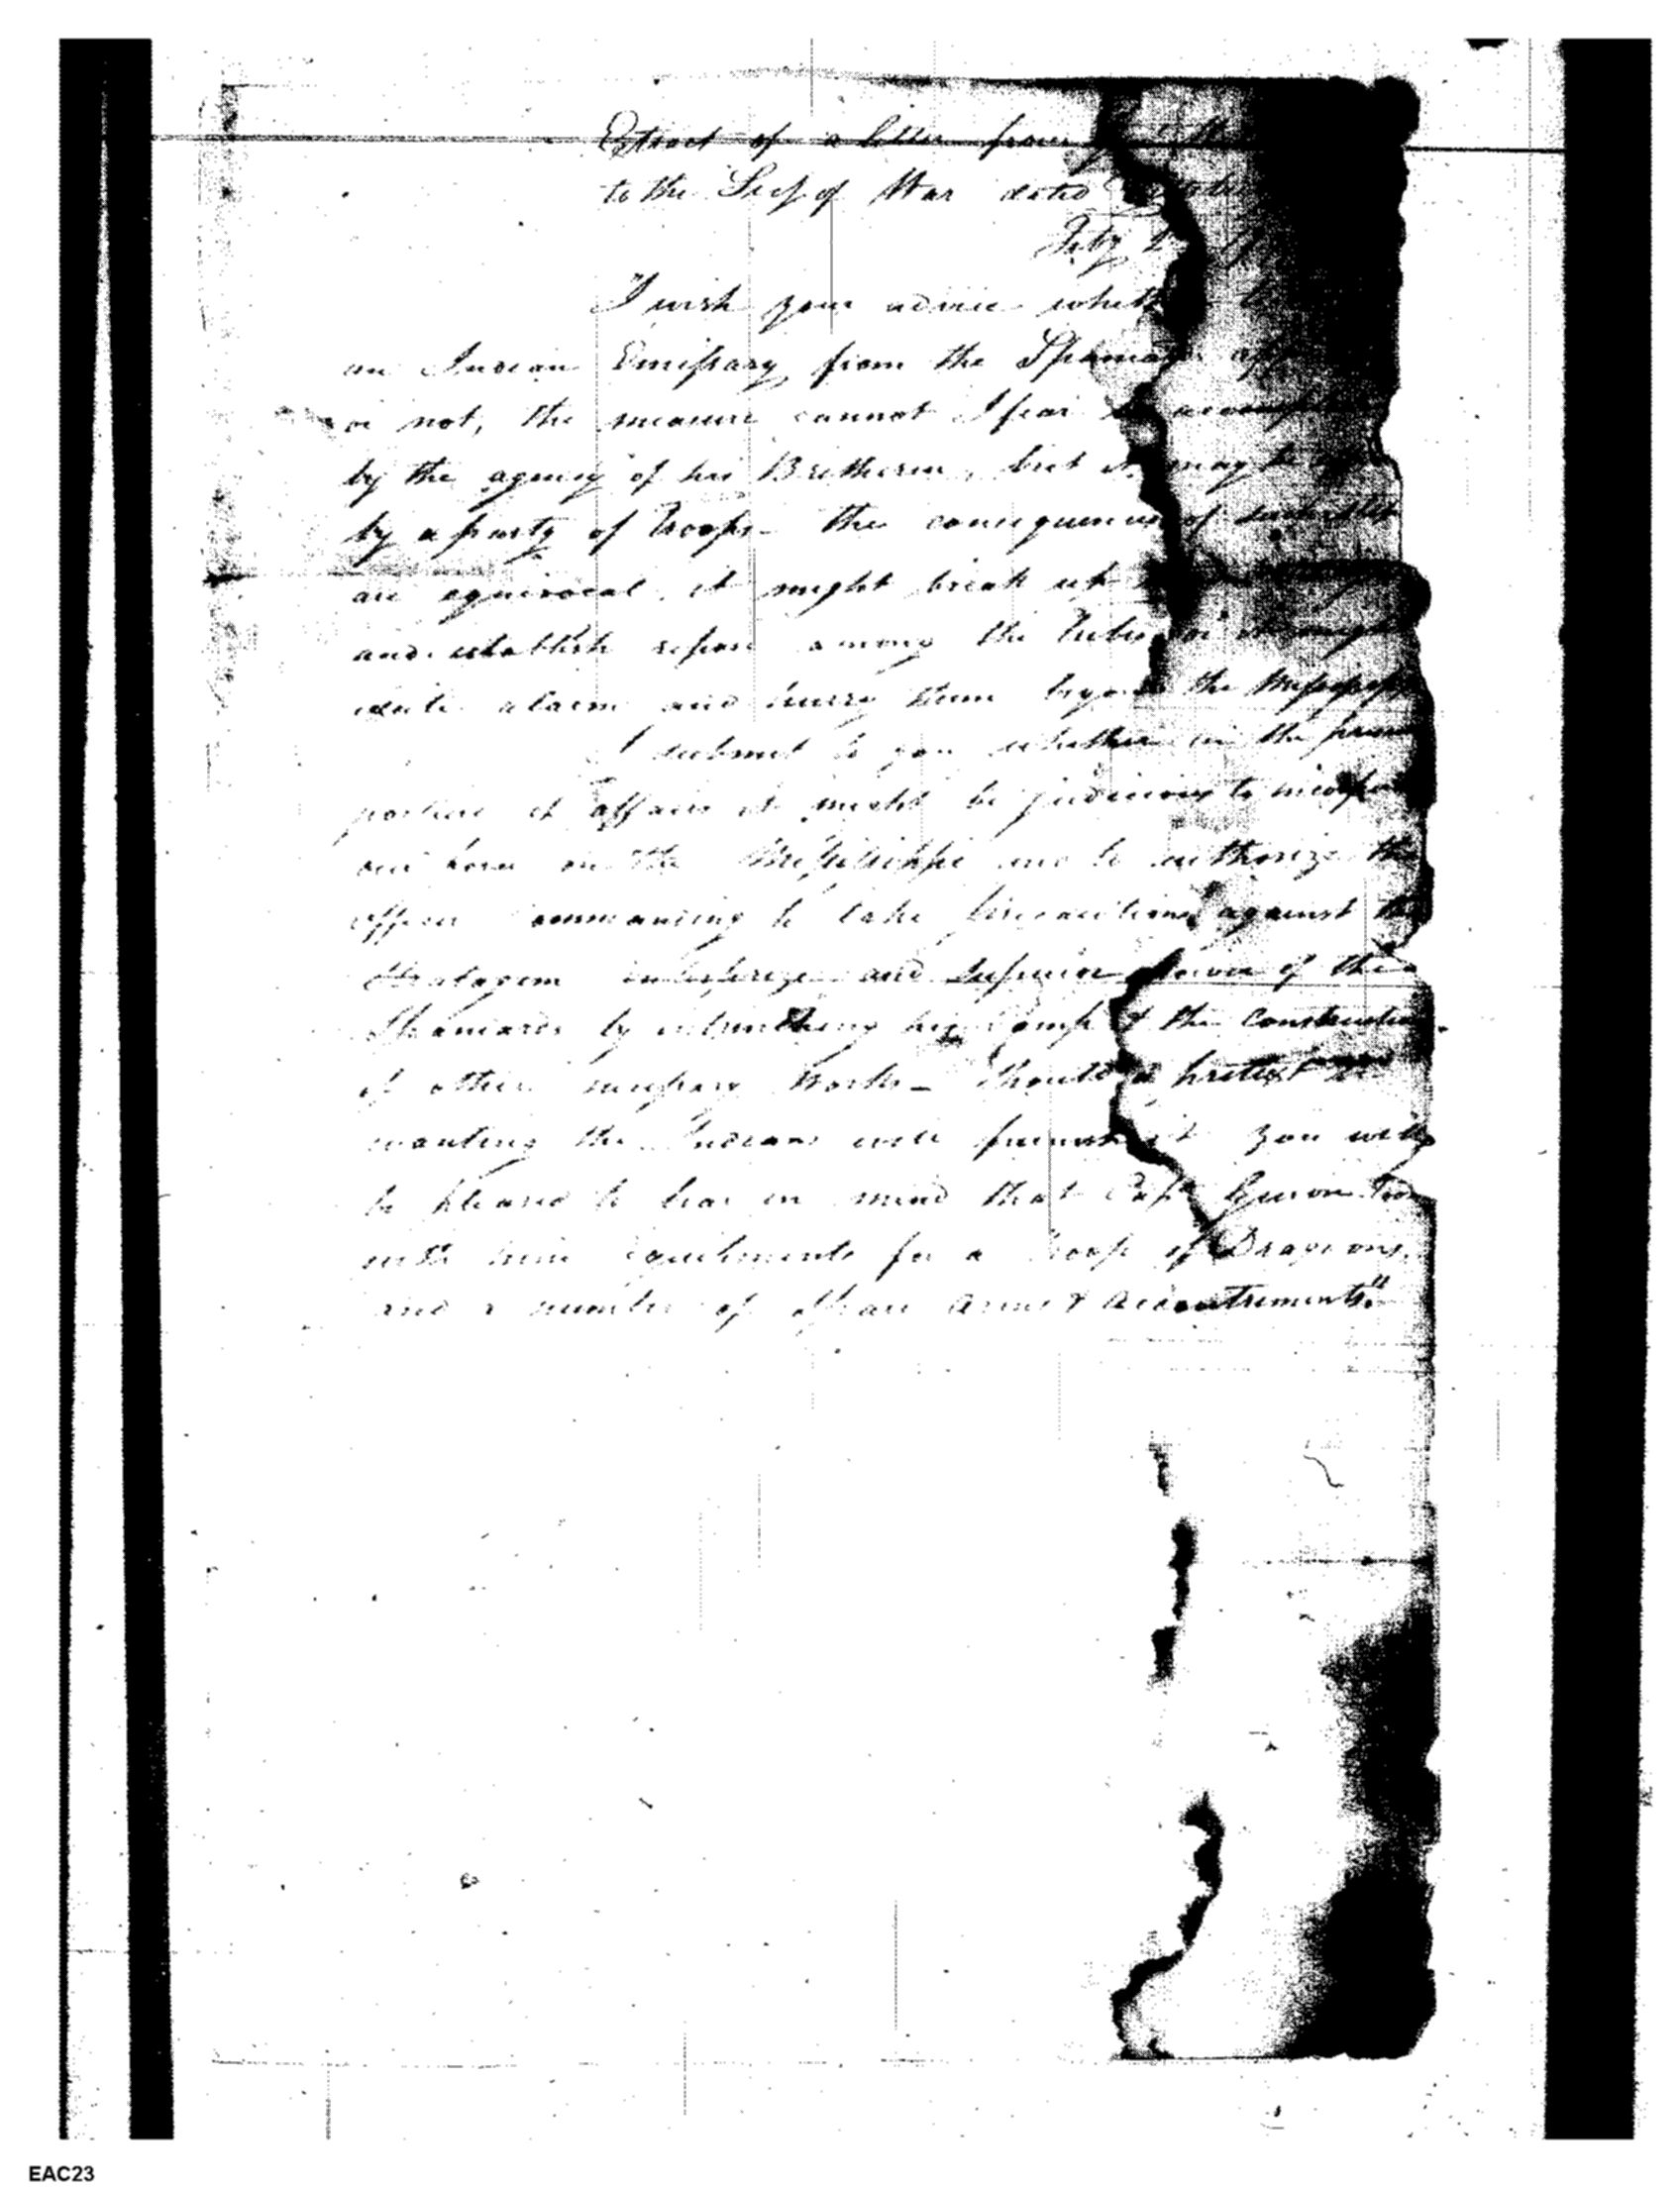 Extract of a letter from
to the Secy of War dated
July
"I wish your advice whether
an Indian Emissary from the Spaniards
or not, the measure cannot I fear be
by the agency of his Bretheren, but it may be
by a party of Troops - the consequences of such step
are equivocal, it might break up
and establish repose among the Tribes or it may
excite alarm and hurry them beyond the Missisippi
I submit to you whether in the present
posture of affairs it might be judicious to
our force on the Missisippi and to authorize the
officer commanding to take precautions against the
Stratagem enterprize and superior power of the
Spaniards by entrenching his Camp & the construction
of other necessary Works - Should a pretext be
wanting the Indians will furnish it you will
be pleased to bear in mind that Capt Guion
with him equipments for a Troop of Dragoons,
and a number of spare arms & accoutrements."
EAC23